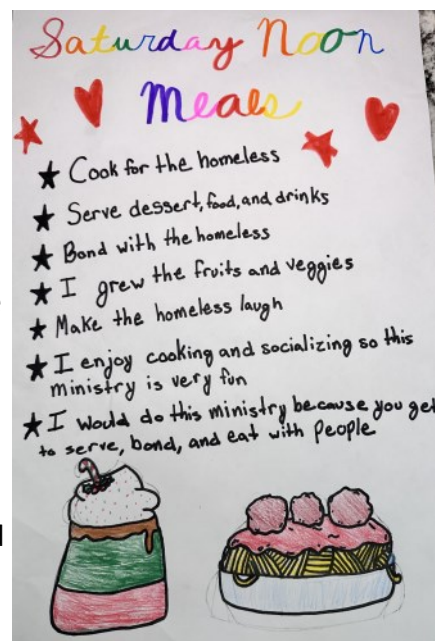 Saturday Noon
Meals
★ Cook for the homeless
★ Serve dessert, food, and drinks
★ Bond with the homeless
★ I grew the fruits and veggies
★ Make the homeless laugh
★ I enjoy cooking and socializing so this
ministry is very fun
★ I would do this ministry because you get
to serve, bond, and eat with people